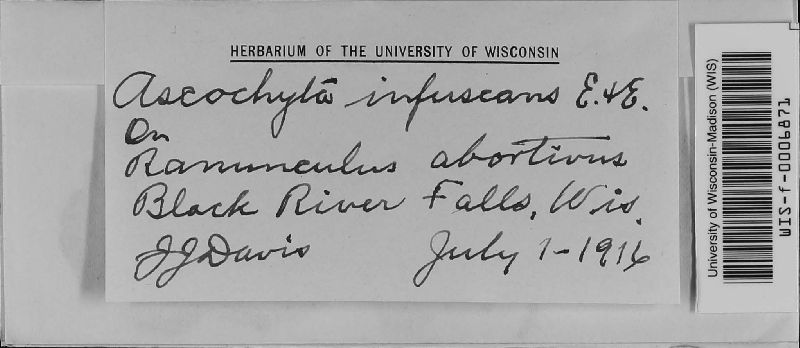 HERBARIUM OF THE UNIVERSITY OF WISCONSIN
Ascochyta infuscans E. & E.
On
Ranunculus abortivus
Black River Falls, Wis.
J J Davis July 1-1916
University of Wisconsin-Madison (WIS)
WIS-f-0006871